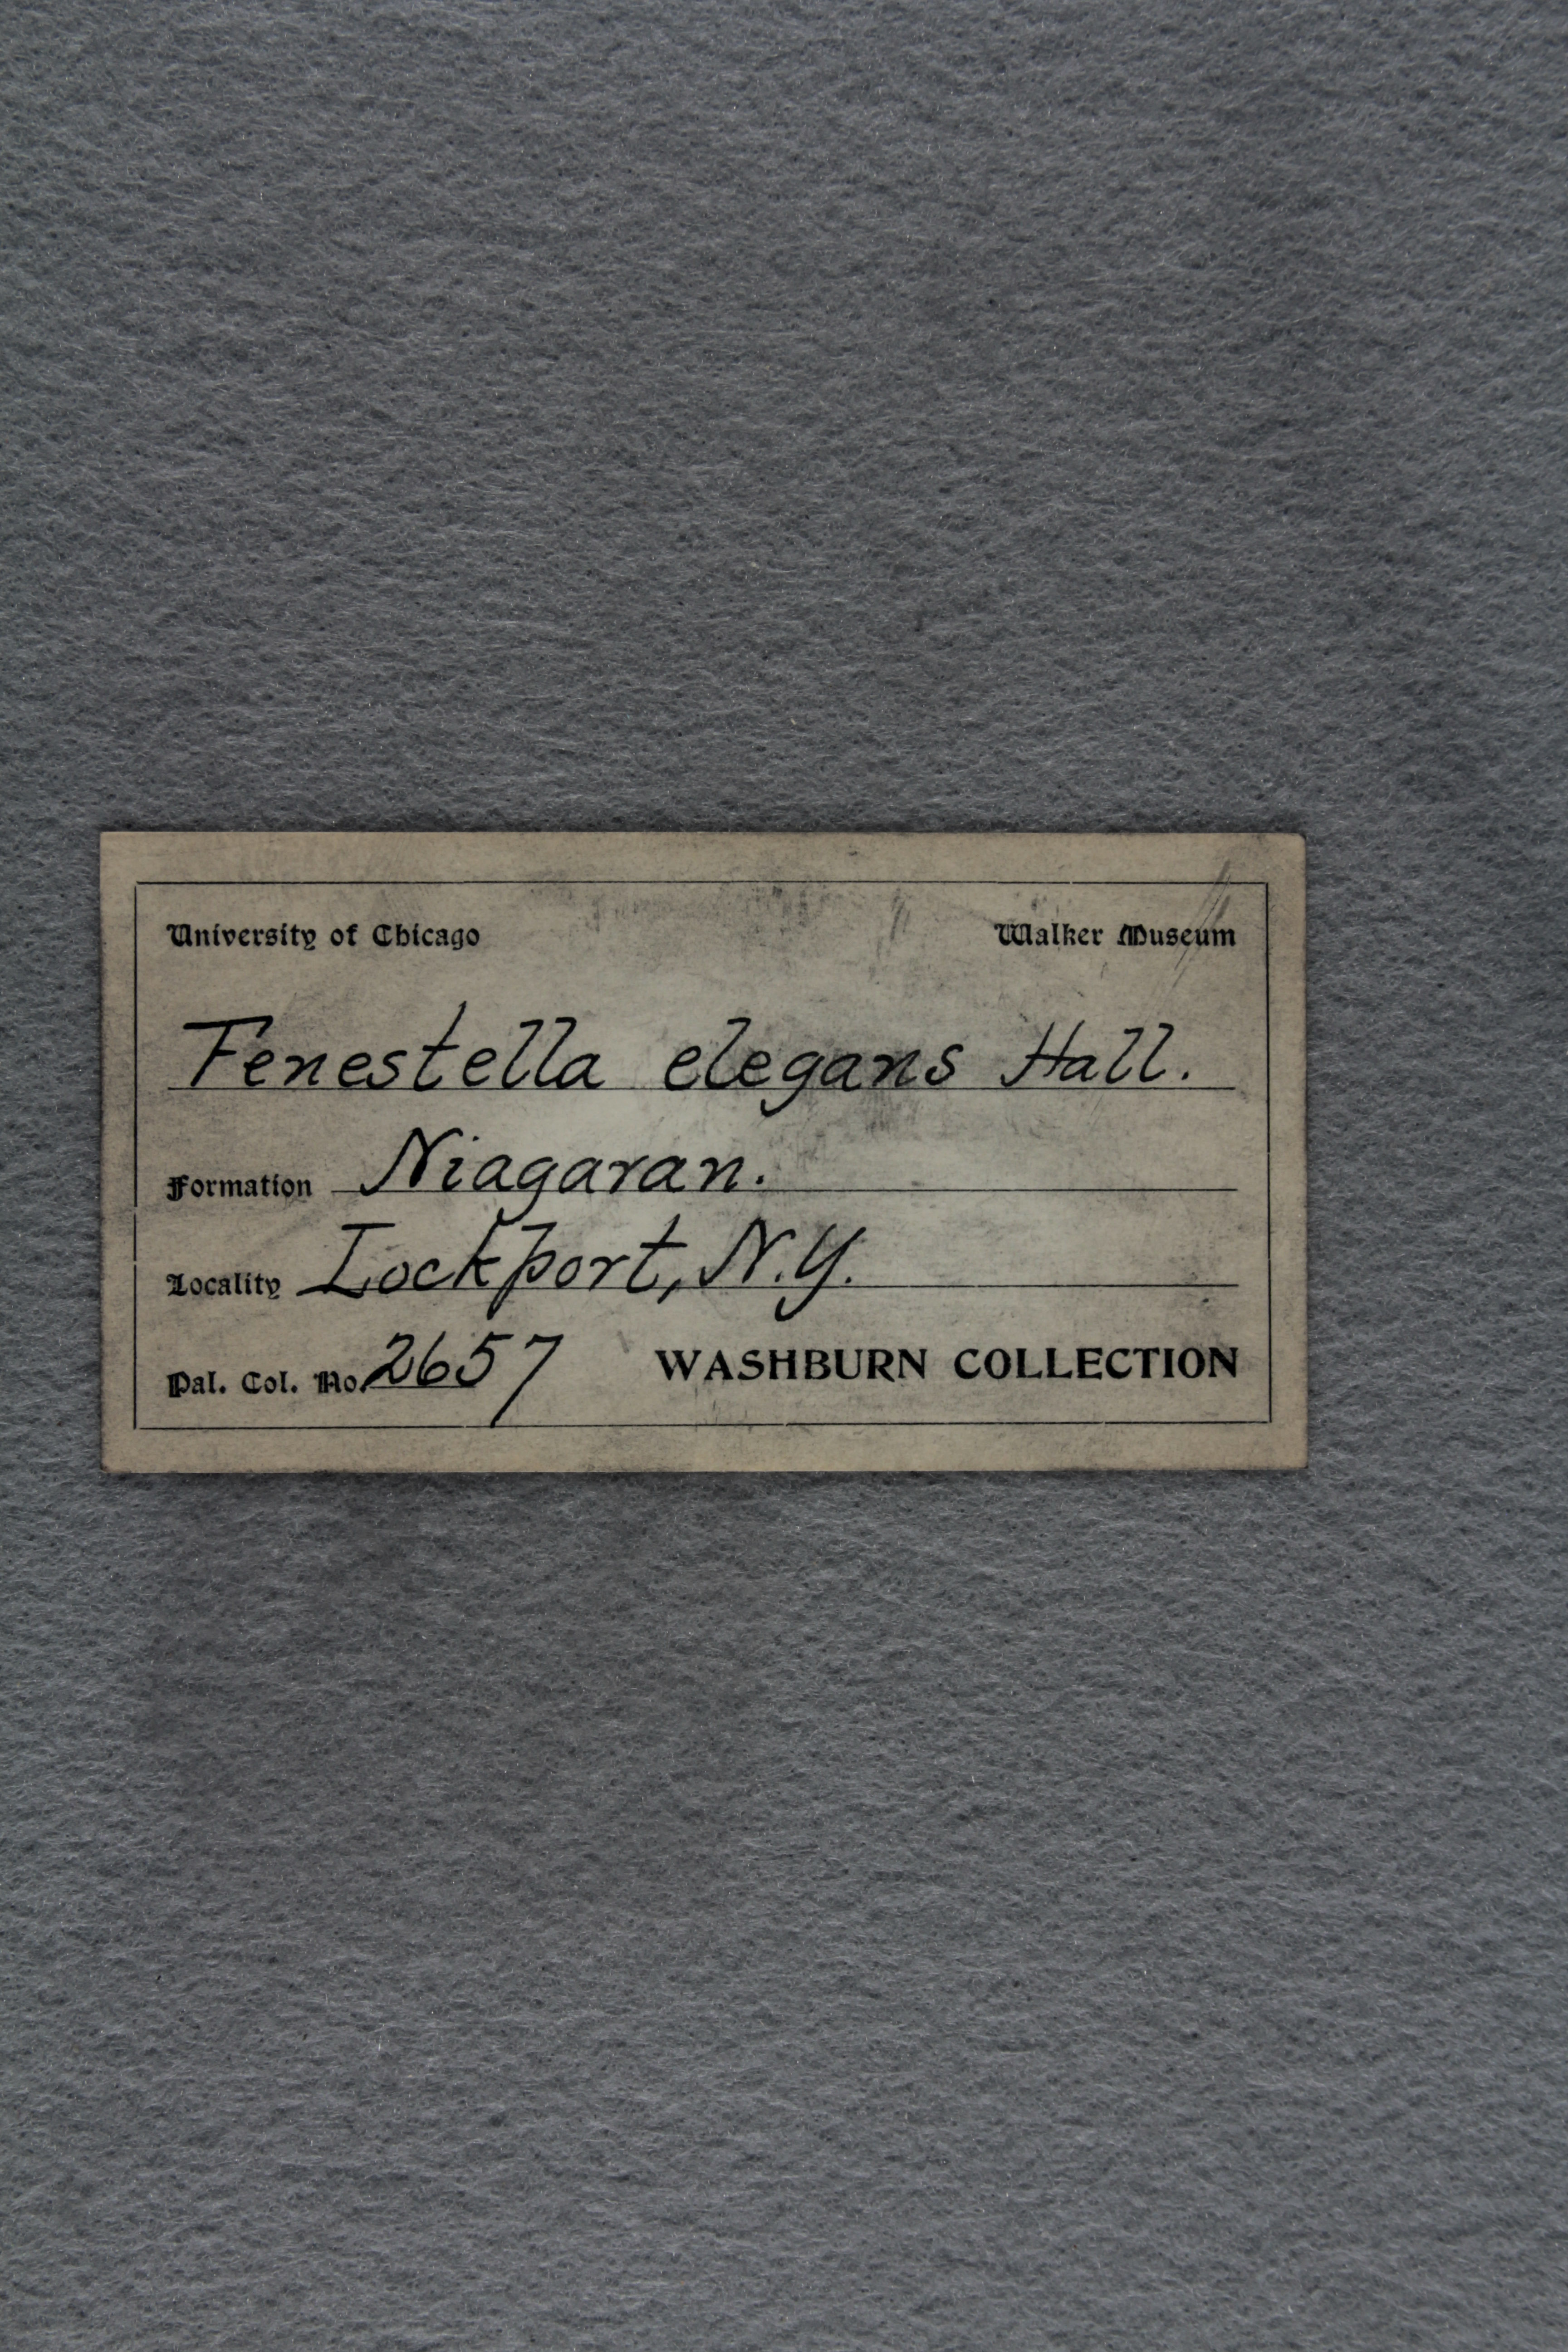 University of Chicago Walker Museum
Fenestella elegans Hall.
Formation Niagaran.
Locality Lockport, N.Y.
Pal. Col. No. 2657 WASHBURN COLLECTION